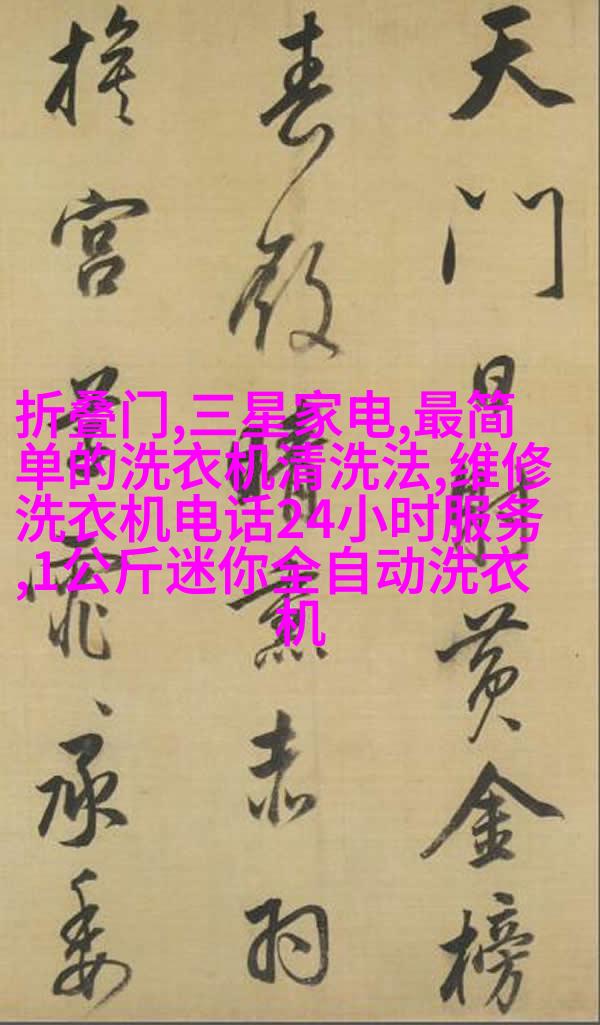 折叠门,三星家电,最简
单的洗衣机清洗法,维修
洗衣机电话24小时服务
,1公斤迷你全自动洗衣
机
天门日射黄金榜
春殿晴熏赤羽
旗宫草霏々承委